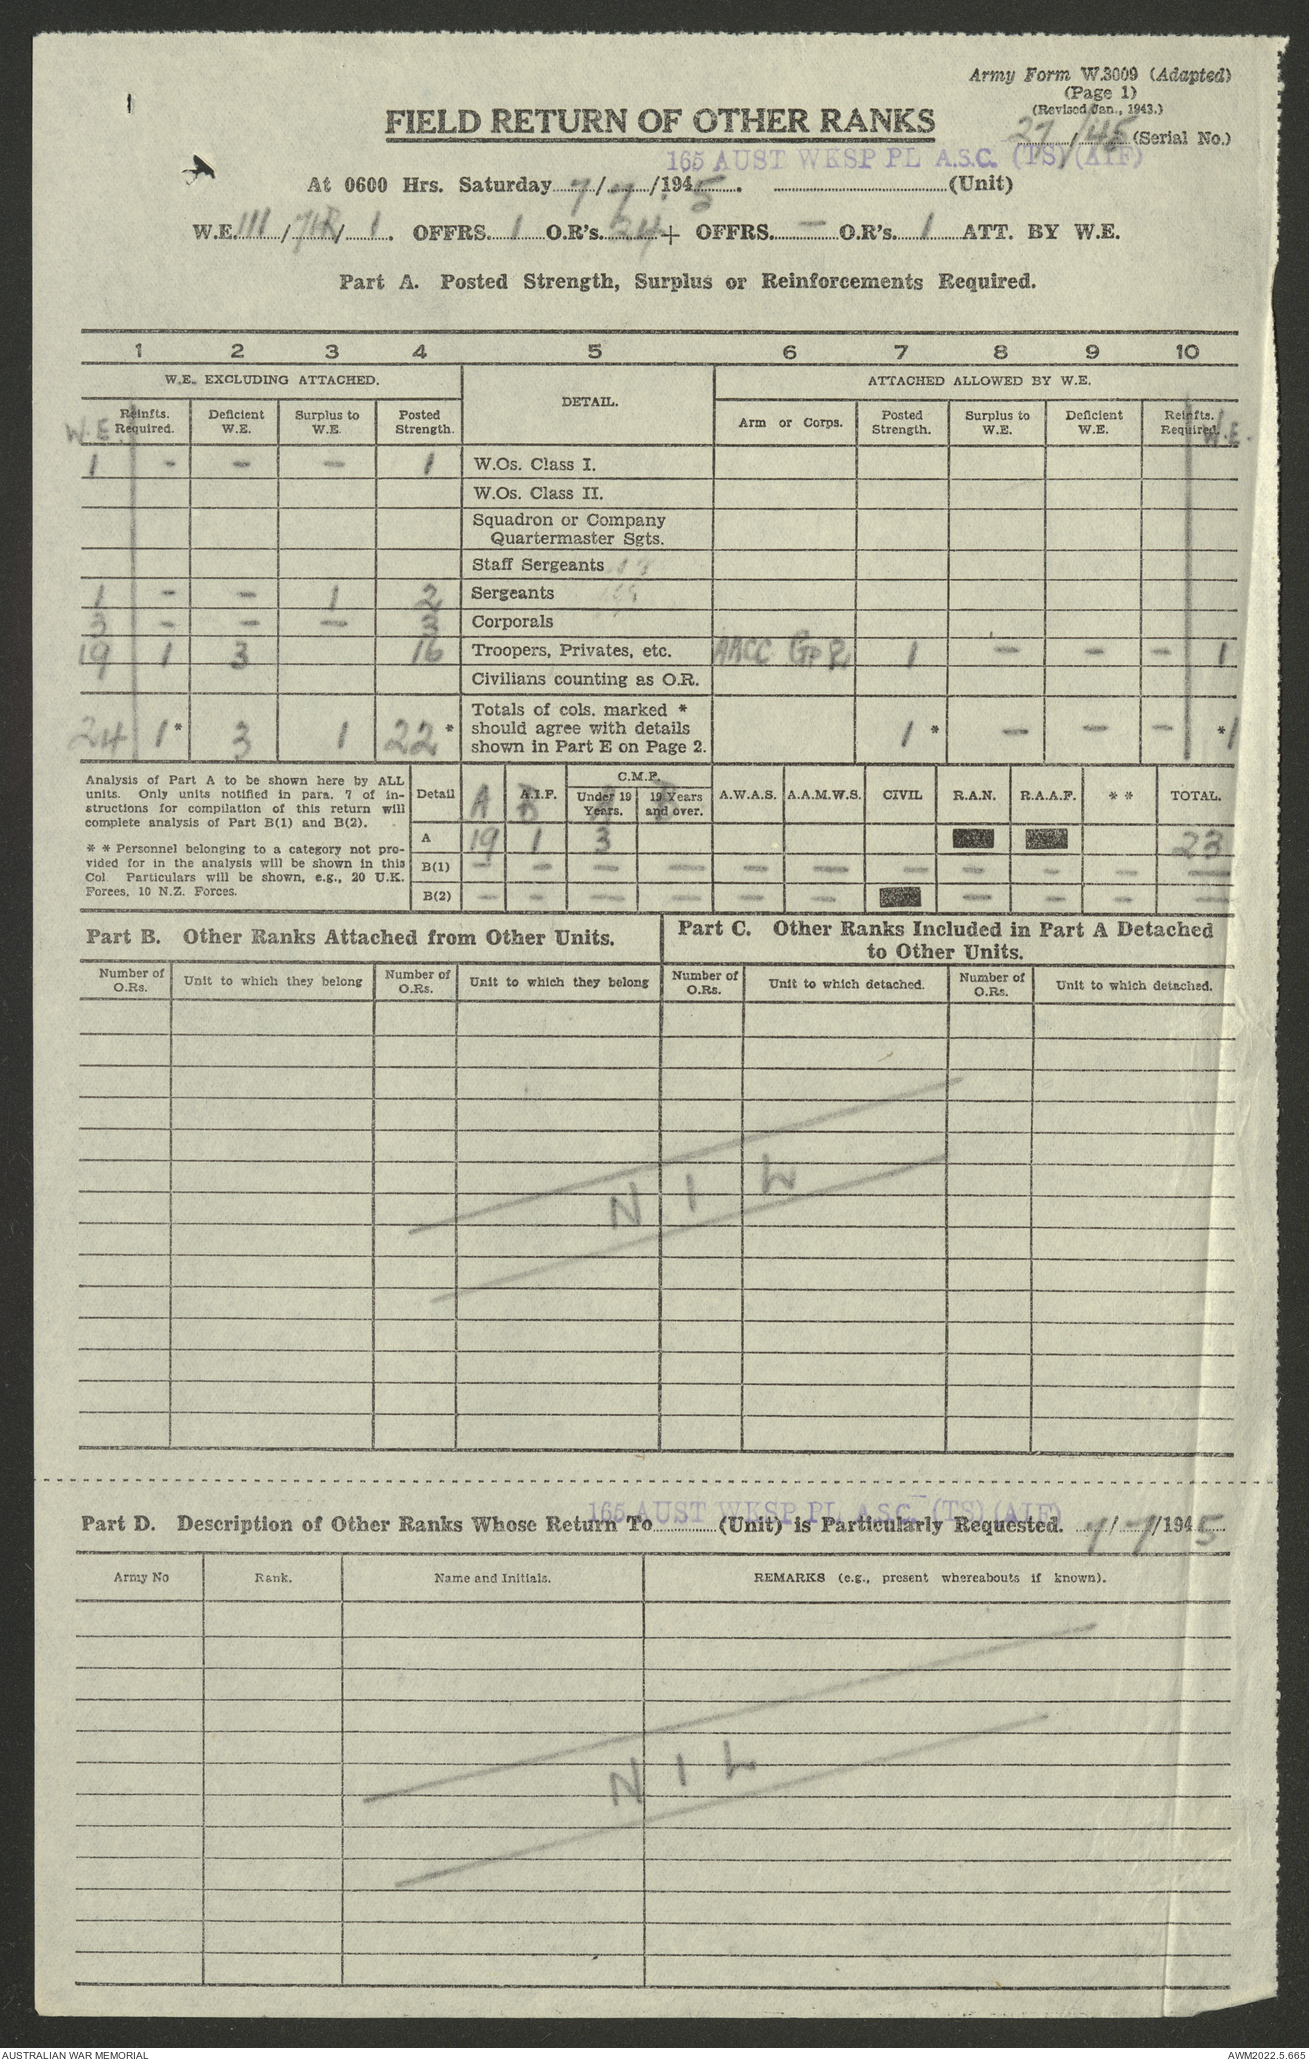 1
Army Form W.3009 (Adapted)
(Page 1)
(Revised Jan., 1943.)
FIELD RETURN OF OTHER RANKS
27/45 (Serial No.)
165 AUST WKSP PL A.S.C. (TS) (AIF)
At 0600 Hrs. Saturday 7/7/1945. (Unit)
W.E. 111/ / 1. OFFRS. 1 O.R's. 24 + OFFRS. — O.R's. 1 ATT. BY W.E.
Part A. Posted Strength, Surplus or Reinforcements Required.
1 2 3 4 5 6 7 8 9 10
W.E. EXCLUDING ATTACHED. DETAIL. ATTACHED ALLOWED BY W.E.
W.E. Reinfts. Required. Deficient W.E. Surplus to W.E. Posted Strength. Arm or Corps. Posted Strength. Surplus to W.E. Deficient W.E. Reinfts. Required. W.E.
1 - - - 1 W.Os. Class I.
W.Os. Class II.
Squadron or Company
Quartermaster Sgts.
Staff Sergeants
1 - - 1 2 Sergeants
3 - - - 3 Corporals
19 1 3 16 Troopers, Privates, etc. AACC Gp 2 1 - - - 1
Civilians counting as O.R.
Totals of cols. marked *
should agree with details
shown in Part E on Page 2.
24 1* 3 1 22* 1* - - - *1
Analysis of Part A to be shown here by ALL
units. Only units notified in para. 7 of in-
structions for compilation of this return will
complete analysis of Part B(1) and B(2).
* * Personnel belonging to a category not pro-
vided for in the analysis will be shown in this
Col. Particulars will be shown, e.g., 20 U.K.
Forces, 10 N.Z. Forces.
Detail A A.I.F. B C.M.F. Under 19 Years. A 19 Years and over. B A.W.A.S. A.A.M.W.S. CIVIL R.A.N. R.A.A.F. * * TOTAL.
A 19 1 3 23
B(1) - - - - - - - - - - -
B(2) - - - - - - - - - -
Part B. Other Ranks Attached from Other Units.
Part C. Other Ranks Included in Part A Detached
to Other Units.
Number of O.Rs. Unit to which they belong Number of O.Rs. Unit to which they belong Number of O.Rs. Unit to which detached. Number of O.Rs. Unit to which detached.
NIL
165 AUST WKSP PL A.S.C. (TS) (AIF)
Part D. Description of Other Ranks Whose Return To (Unit) is Particularly Requested. 7/7/1945
Army No Rank. Name and Initials. REMARKS (e.g., present whereabouts if known).
NIL
AUSTRALIAN WAR MEMORIAL
AWM2022.5.665